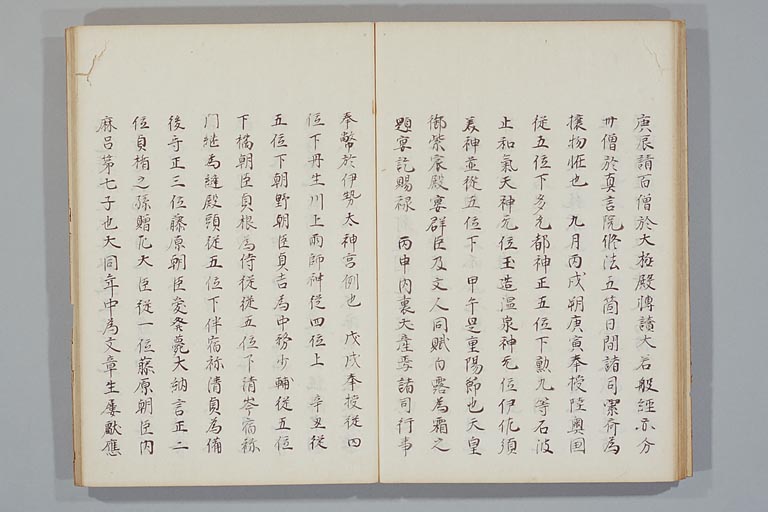 庚辰請百僧於大極殿轉讀大若般經亦分
廿僧於真言院修法五箇日間諸司潔齋為
攘物恠也 九月丙戌朔庚寅奉授陸奧国
從五位下多久都神正五位下勳九等石波
止和氣天神元位玉造温泉神元位伊佐須
美神並從五位下 甲午是重陽節也天皇
御紫宸殿宴群臣及文人同賦白露為霜之
題宴訖賜祿 丙申内裏天産焉諸司行事
奉幣於伊勢太神宮例也 戊戌奉授從四
位下丹生川上雨師神從四位上 辛丑從
五位下朝野朝臣貞吉為中務少輔從五位
下橘朝臣貞根為侍從從五位下清岑宿祢
門継為縫殿頭從五位下伴宿祢清貞為備
後守正三位藤原朝臣愛發薨大納言正二
位真楯之孫贈左大臣從一位藤原朝臣内
麻呂第七子也大同年中為文章生屢獻應